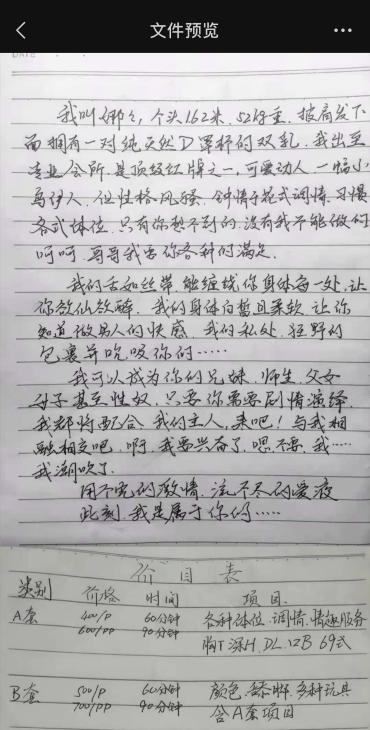 文件预览
DATE
我叫娜々，个头162米，52kg重，披肩发下
面拥有一对纯天然D罩杯的双乳，我出至
专业会所，是顶级红牌之一，可爱动人，一幅小
鸟伊人，但性格风骚，钟情于花式调情，习惯
各式体位，只有你想不到的，没有我不能做的
呵呵，哥哥我要你各种的满足。
我的舌如丝带，能缠绕你身体每一处，让
你欲仙欲醉，我的身体白皙且柔软，让你
知道做男人的快感，我的私处，狂野的
包裹并吮吸你的……
我可以成为你的兄妹，师生，父女
母子甚至性奴，只要你需要剧情演绎，
我都将配合，我的主人，来吧！与我相
融相交吧，啊，我要兴奋了，嗯不要，我……
我潮吹了。
用不完的激情，流不尽的爱液
此刻，我是属于你的……
价目表
类别 价格 时间 项目
A套 400/P 60分钟 各种体位、调情、情趣服务
600/PP 90分钟 胸T 深H DL 口B 69式
B套 500/P 60分钟 颜色、舔脚、多种玩具
700/PP 90分钟 含A套项目